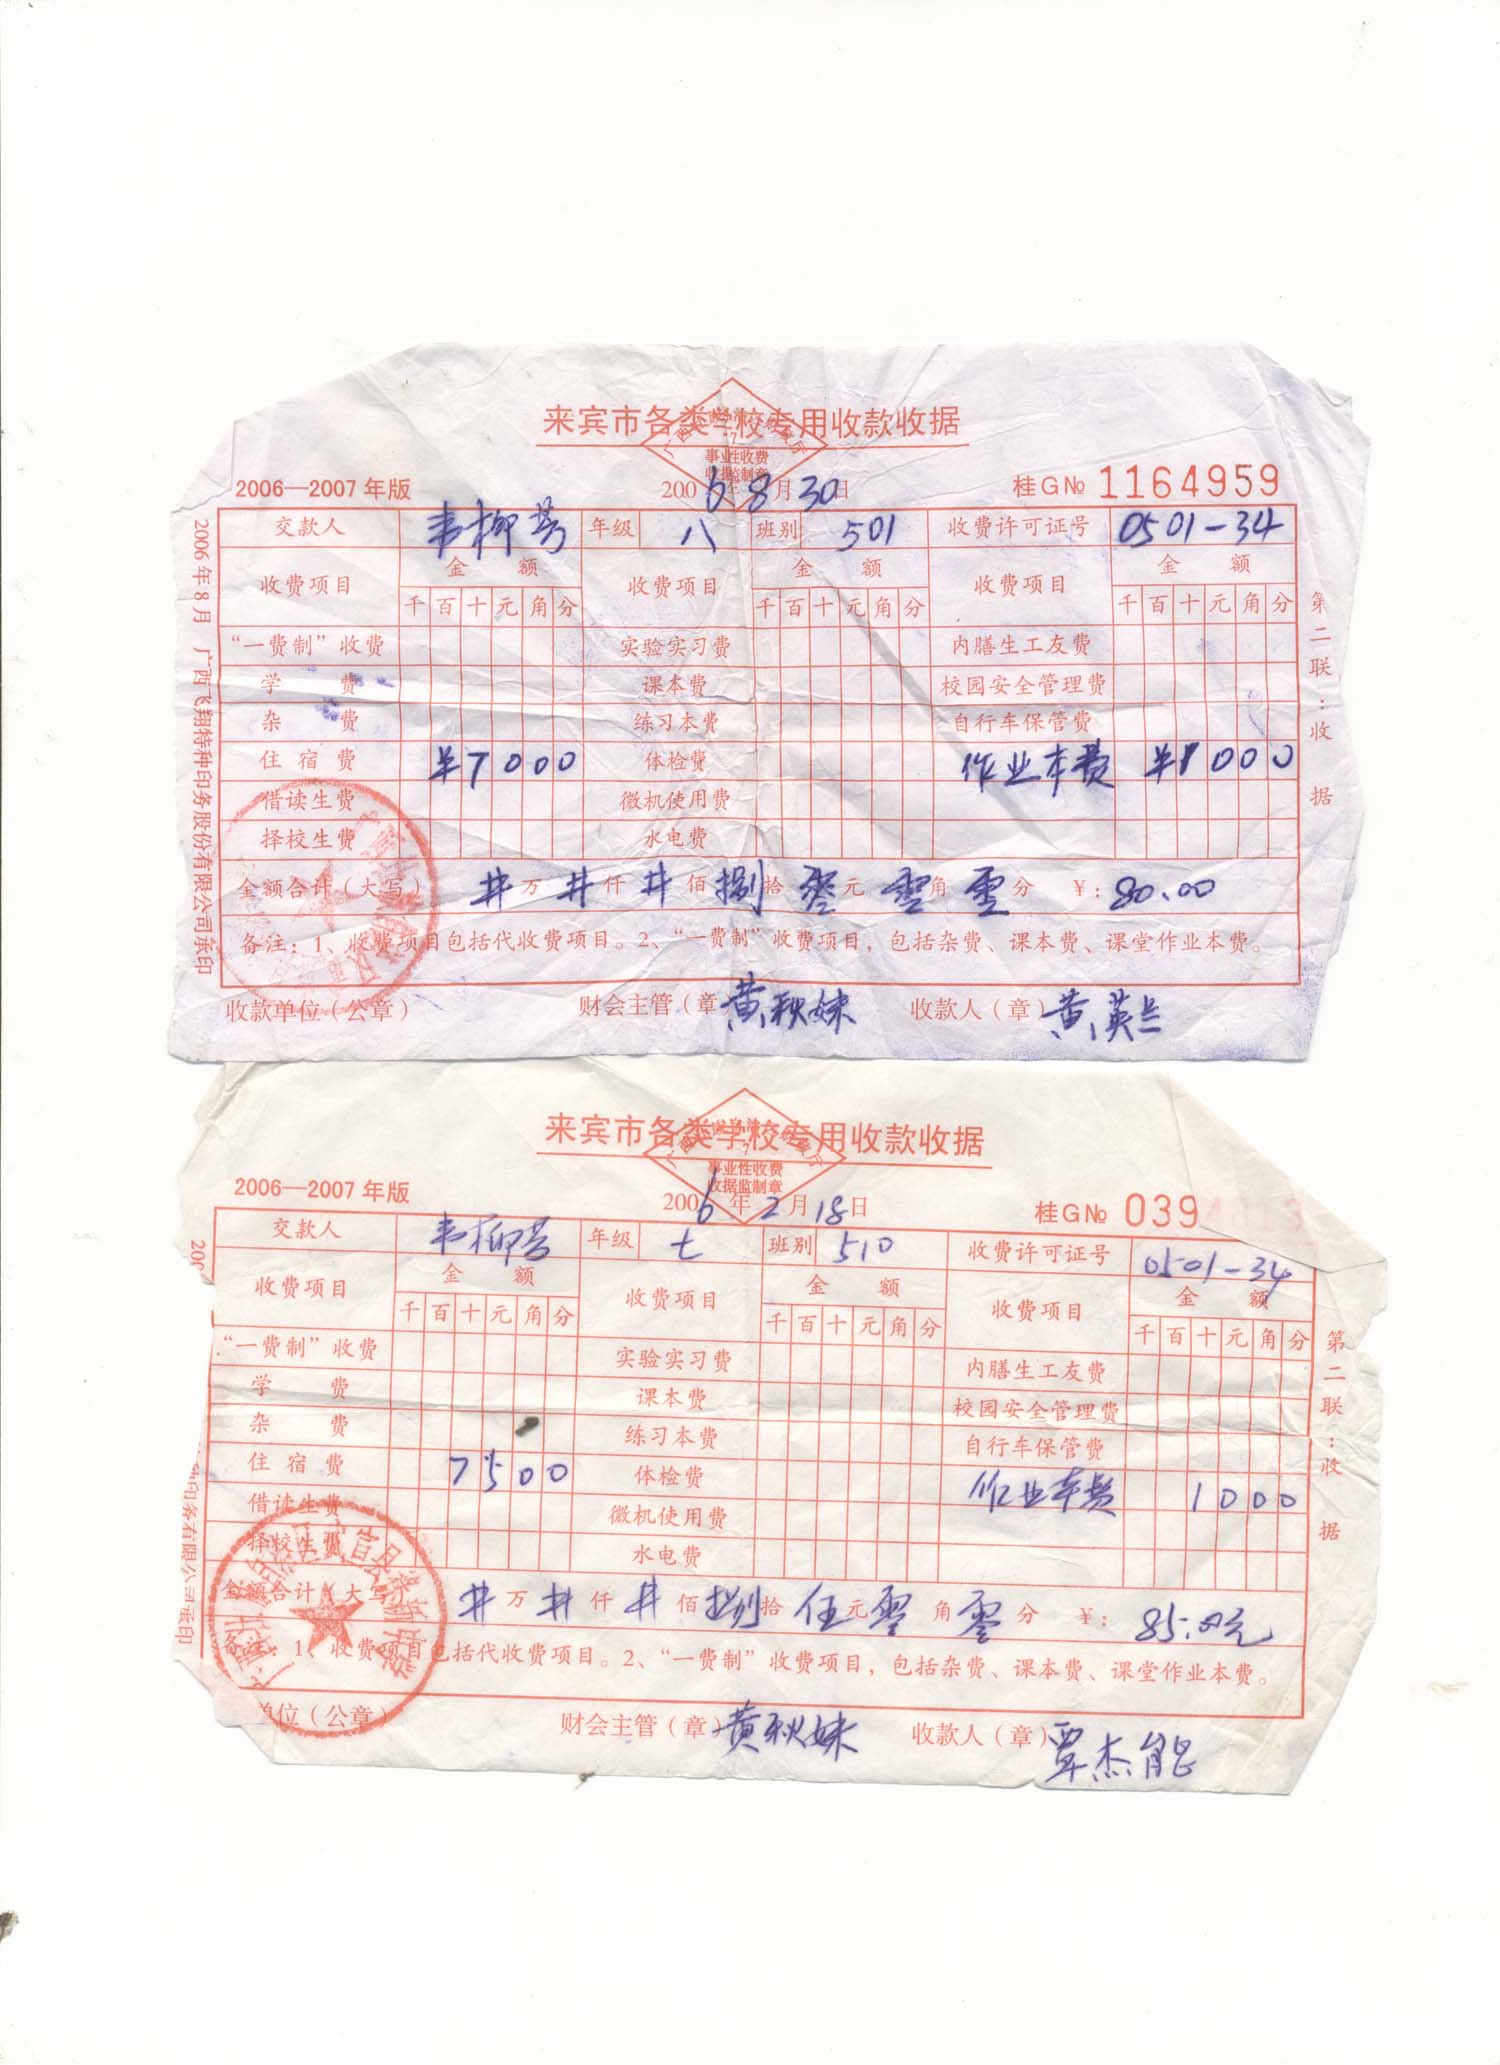 来宾市各类学校专用收款收据
事业性收费
收据监制章
2006—2007年版 2006年8月30日 桂G№ 1164959
交款人 韦柳芳 年级 八 班别 501 收费许可证号 0501-34
收费项目 金额 收费项目 金额 收费项目 金额
千百十元角分 千百十元角分 千百十元角分
“一费制”收费 实验实习费 内膳生工友费
学费 课本费 校园安全管理费
杂费 练习本费 自行车保管费
住宿费 ¥7000 体检费 作业本费 ¥1000
借读生费 微机使用费
择校生费 水电费
金额合计(大写) 井万井仟井佰捌拾零元零角零分 ¥:80.00
备注:1、收费项目包括代收费项目。2、“一费制”收费项目,包括杂费、课本费、课堂作业本费。
收款单位(公章) 财会主管(章) 黄秋妹 收款人(章) 黄英兰
2006年8月 广西飞翔特种印务股份有限公司承印
第二联:收据
来宾市各类学校专用收款收据
事业性收费
收据监制章
2006—2007年版 2006年2月18日 桂G№ 039
交款人 韦柳芳 年级 七 班别 510 收费许可证号 0501-34
收费项目 金额 收费项目 金额 收费项目 金额
千百十元角分 千百十元角分 千百十元角分
“一费制”收费 实验实习费 内膳生工友费
学费 课本费 校园安全管理费
杂费 练习本费 自行车保管费
住宿费 7500 体检费 作业本费 1000
借读生费 微机使用费
择校生费 水电费
金额合计(大写) 井万井仟井佰捌拾伍元零角零分 ¥:85.00元
备注:1、收费项目包括代收费项目。2、“一费制”收费项目,包括杂费、课本费、课堂作业本费。
单位(公章) 财会主管(章) 黄秋妹 收款人(章) 覃杰能
印务有限公司承印
第二联:收据